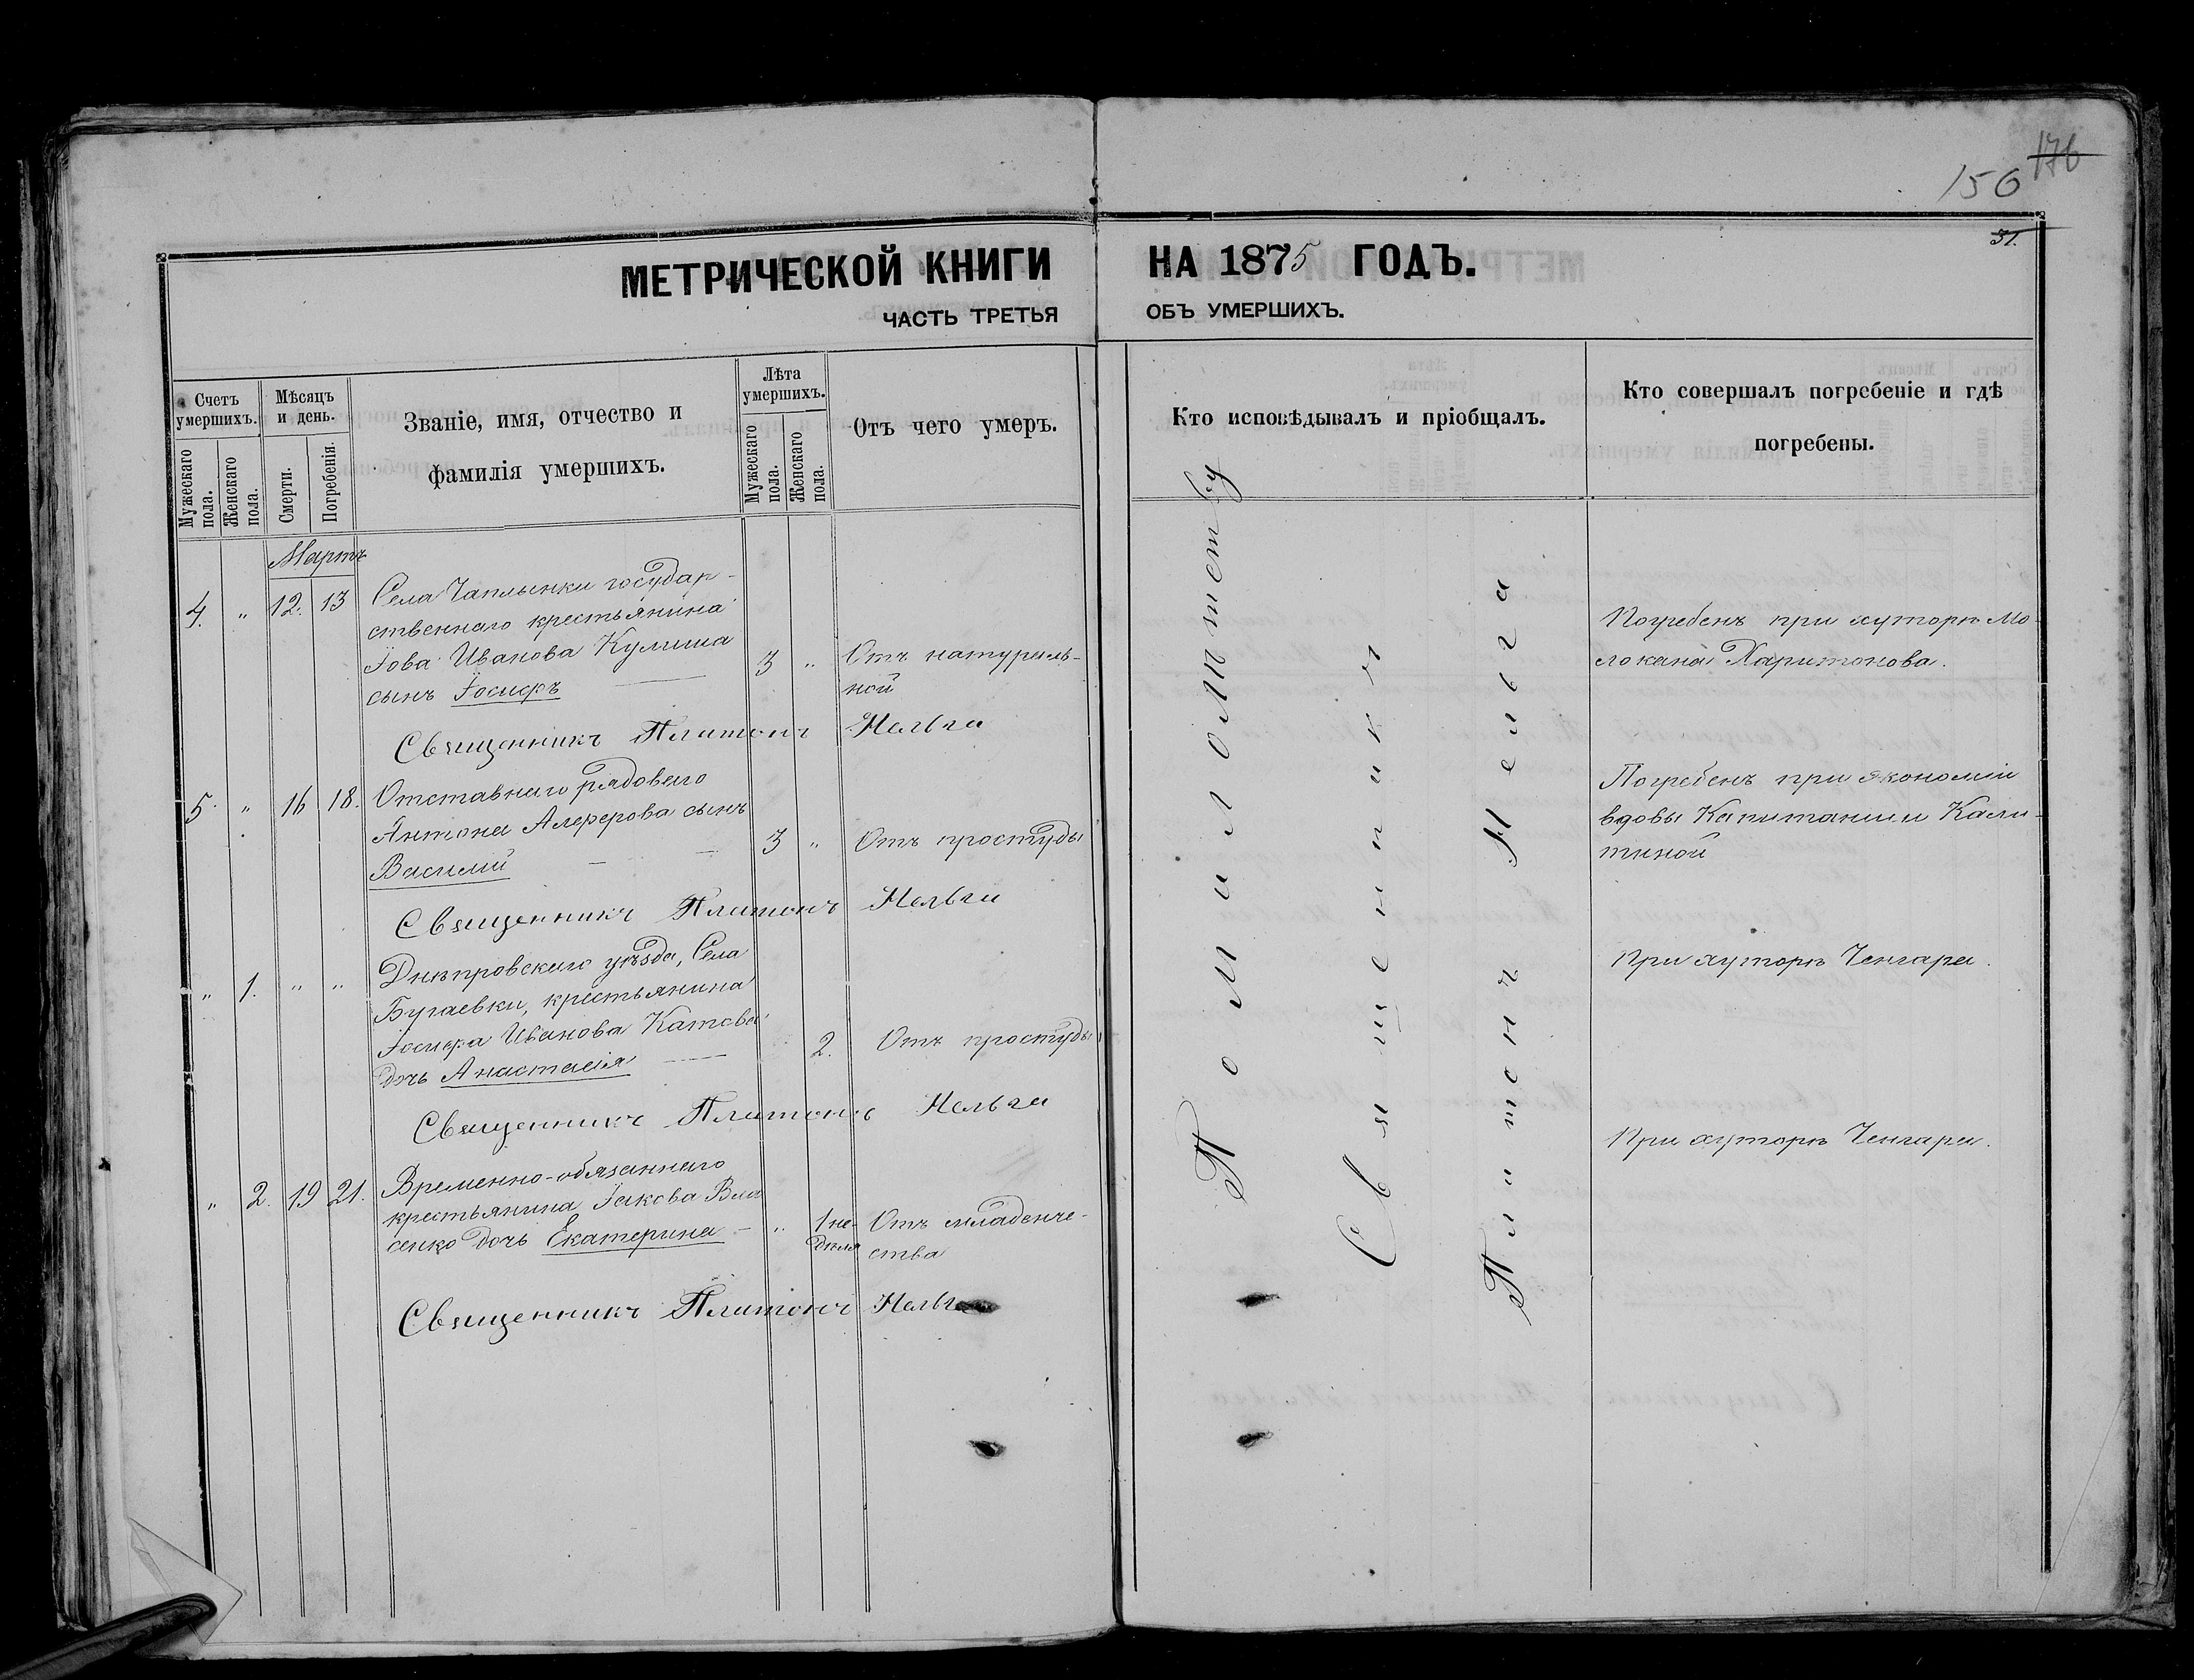 176
150
51.
МЕТРИЧЕСКОЙ КНИГИ НА 1875 ГОДЪ.
ЧАСТЬ ТРЕТЬЯ ОБЪ УМЕРШИХЪ.
Счетъ умершихъ.
Мужескаго пола.
Женскаго пола.
Мѣсяцъ и день.
Смерти.
Погребенія.
Званіе, имя, отчество и
фамилія умершихъ.
Лѣта умершихъ.
Мужескаго пола.
Женскаго пола.
Отъ чего умеръ.
Кто исповѣдывалъ и пріобщалъ.
Кто совершалъ погребеніе и гдѣ
погребены.
Мартъ
4. " 12. 13 Села Чаплынки государ-
ственнаго крестьянина
Іова Иванова Кулиша
сынъ Іосифъ
3 " Отъ натураль-
ной
Погребенъ при хуторѣ Мо-
локана Харитонова.
Священникъ Платонъ Нельга
5. " 16 18. Отставнаго рядоваго
Антона Алферова сынъ
Василій
3 " Отъ простуды
Погребенъ при экономіи
вдовы Капитанши Кали-
тиной
Священникъ Платонъ Нельга
" 1. " " Днѣпровскаго уѣзда, Села
Бугаевки, крестьянина
Іосифа Иванова Катова
дочь Анастасія
2. Отъ простуды
При хуторѣ Ченгара.
Священникъ Платонъ Нельга
" 2. 19 21. Временно-обязаннаго
крестьянина Іакова Вла
сенко дочь Екатерина
" 1 не-
дѣля
Отъ младенче-
ства
При хуторѣ Ченгара.
Священникъ Платонъ Нельга
По милолѣтству
Священникъ
Платонъ Нельга